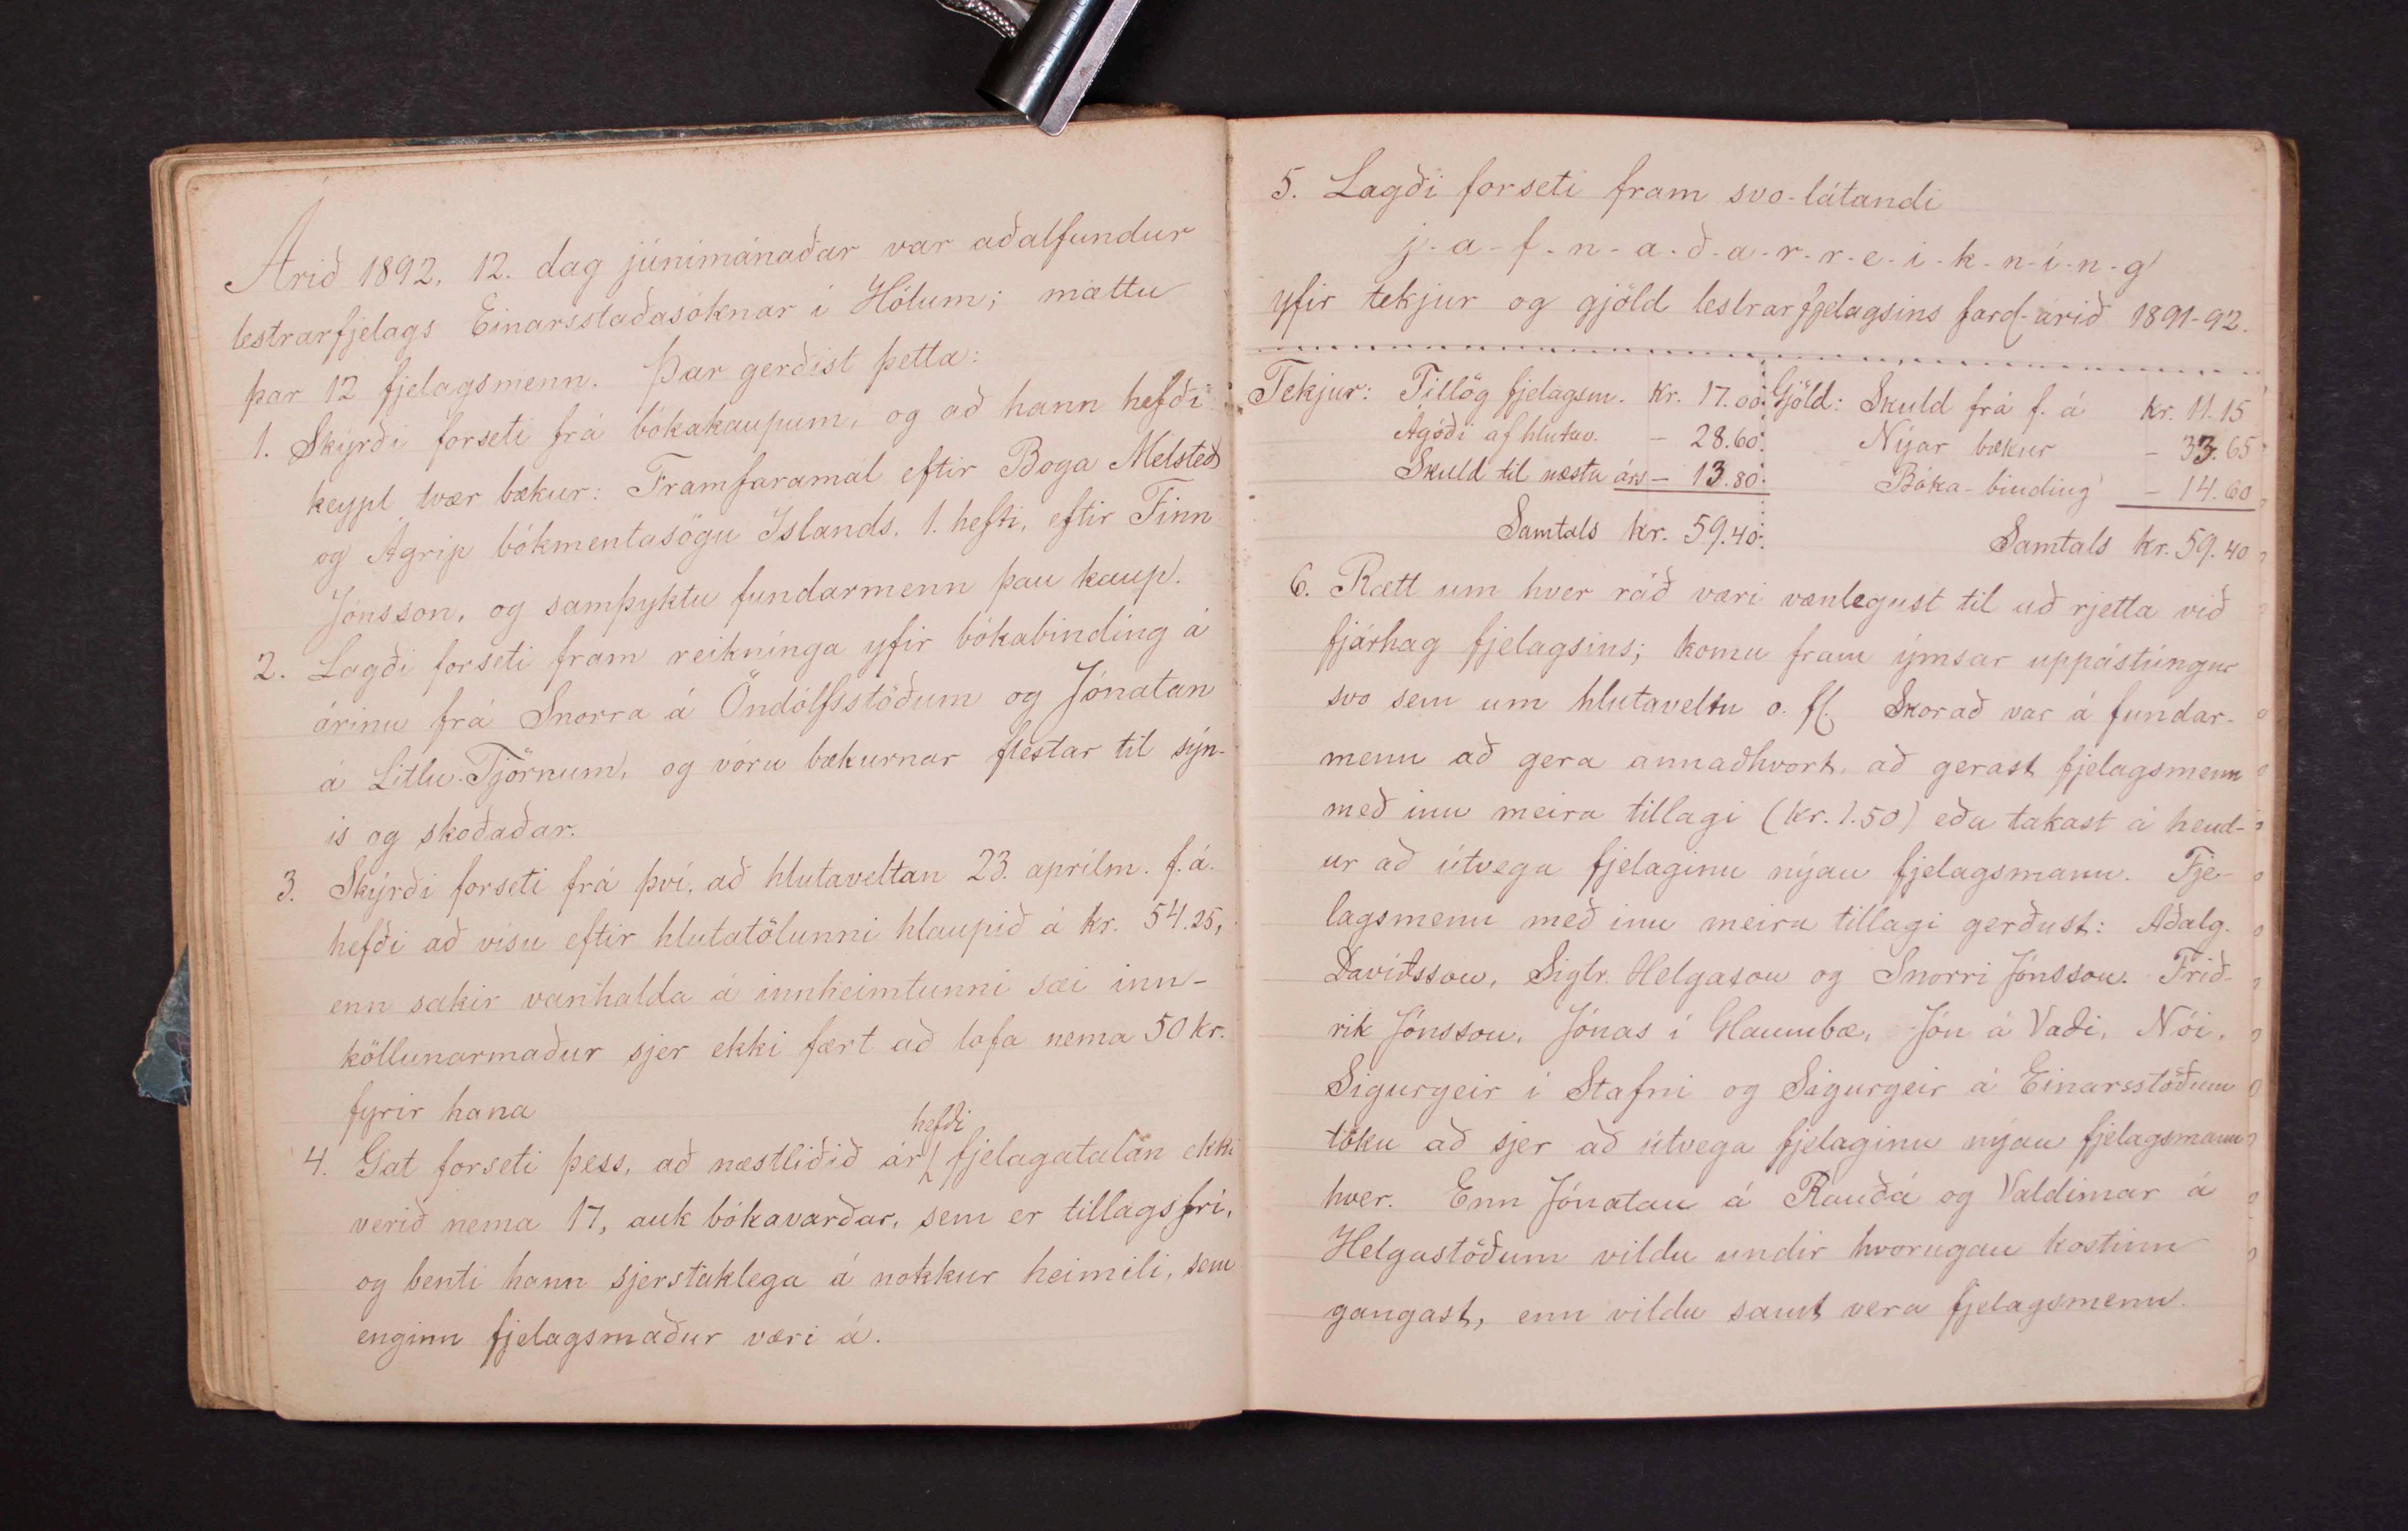 Árið 1892, 12. dag júnímánaðar var aðalfundur
lestrarfjelags Einarsstaðasóknar í Hólum; mættu
þar 12 fjelagsmenn. Þar gerðist þetta:
1. Skýrði forseti frá bókakaupum, og að hann hefði
keypt tvær bækur: Framfaramál eftir Boga Melsteð
og Ágrip bókmentasögu Íslands, 1. hefti, eftir Finn
Jónsson, og samþyktu fundarmenn þau kaup.
2. Lagði forseti fram reiknínga yfir bókabindíng á
árinu frá Snorra á Öndólfsstöðum og Jónatan
á Litlu-Tjörnum, og vóru bækurnar flestar til sýn-
is og skoðaðar.
3. Skýrði forseti frá því, að hlutaveltan 23. aprílm. f. á.
hefði að vísu eftir hlutatölunni hlaupið á kr. 54.25,
enn sakir vanhalda á innheimtunni sæi inn-
köllunarmaður sjer ekki fært að lofa nema 50 kr.
fyrir hana
4. Gat forseti þess, að næstliðið ár hefði fjelagatalan ekki
verið nema 17, auk bókavarðar, sem er tillagsfrí,
og benti hann sjerstaklega á nokkur heimili, sem
enginn fjelagsmaður væri á.
5. Lagði forseti fram svo-látandi
j-a-f-n-a-ð-a-r-r-e-i-k-n-í-n-g
yfir tekjur og gjöld lestrarfjelagsins fard-árið 1891-92.
Tekjur: Tillög fjelagsm. Kr. 17.00 Gjöld: Skuld frá f. á Kr. 11.15
Ágóði af hlutav. - 28.60 Nýar bækur - 33.65
Skuld til næsta árs - 13.80 Bóka-bindíng - 14.60
Samtals kr. 59.40 Samtals kr. 59.40
6. Rætt um hver ráð væri vænlegust til að rjetta við
fjárhag fjelagsins; komu fram ýmsar uppástúngur
svo sem um hlutaveltu o. fl. Skorað var á fundar-
menn að gera annaðhvort, að gerast fjelagsmenn
með inu meira tillagi (kr. 1.50) eða takast á hend-
ur að útvega fjelaginu nýan fjelagsmann. Fje-
lagsmenn með inu meira tillagi gerðust: Aðalg.
Davíðsson, Sigtr. Helgason og Snorri Jónsson. Frið-
rik Jónsson, Jónas í Glaumbæ, Jón á Vaði, Nói,
Sigurgeir í Stafni og Sigurgeir á Einarsstöðum
tóku að sjer að útvega fjelaginu nýan fjelagsmann
hver. Enn Jónatan á Rauðá og Valdimar á
Helgastöðum vildu undir hvorugan kostinn
gangast, enn vildu samt vera fjelagsmenn.